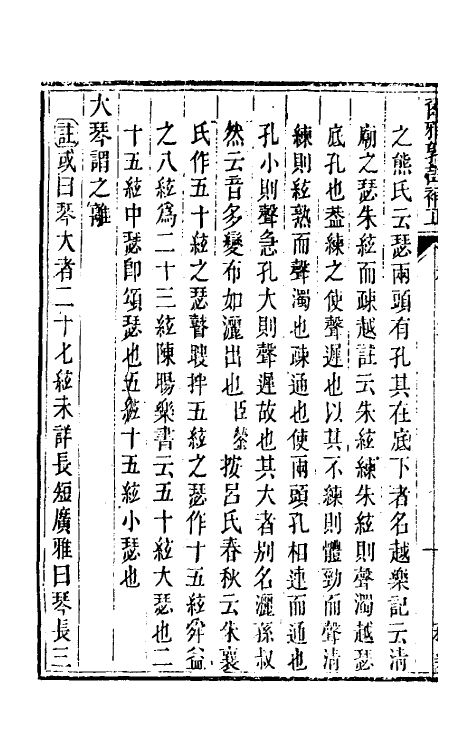 爾雅郭註補正
之熊氏云瑟兩頭有孔其在底下者名越樂記云清
廟之瑟朱絃而疎越註云朱絃練朱絃則聲濁越瑟
底孔也葢練之使聲遲也以其不練則體勁而聲清
練則絃熟而聲濁也疎通也使兩頭孔相連而通也
孔小則聲急孔大則聲遲故也其大者別名灑孫叔
然云音多變布如灑出也臣鎣按呂氏春秋云朱襄
氏作五十絃之瑟瞽瞍拌五絃之瑟作十五絃舜益
之八絃爲二十三絃陳暘樂書云五十絃大瑟也二
十五絃中瑟卽頌瑟也五絃十五絃小瑟也
大琴謂之離
註或曰琴大者二十七絃未詳長短廣雅曰琴長三